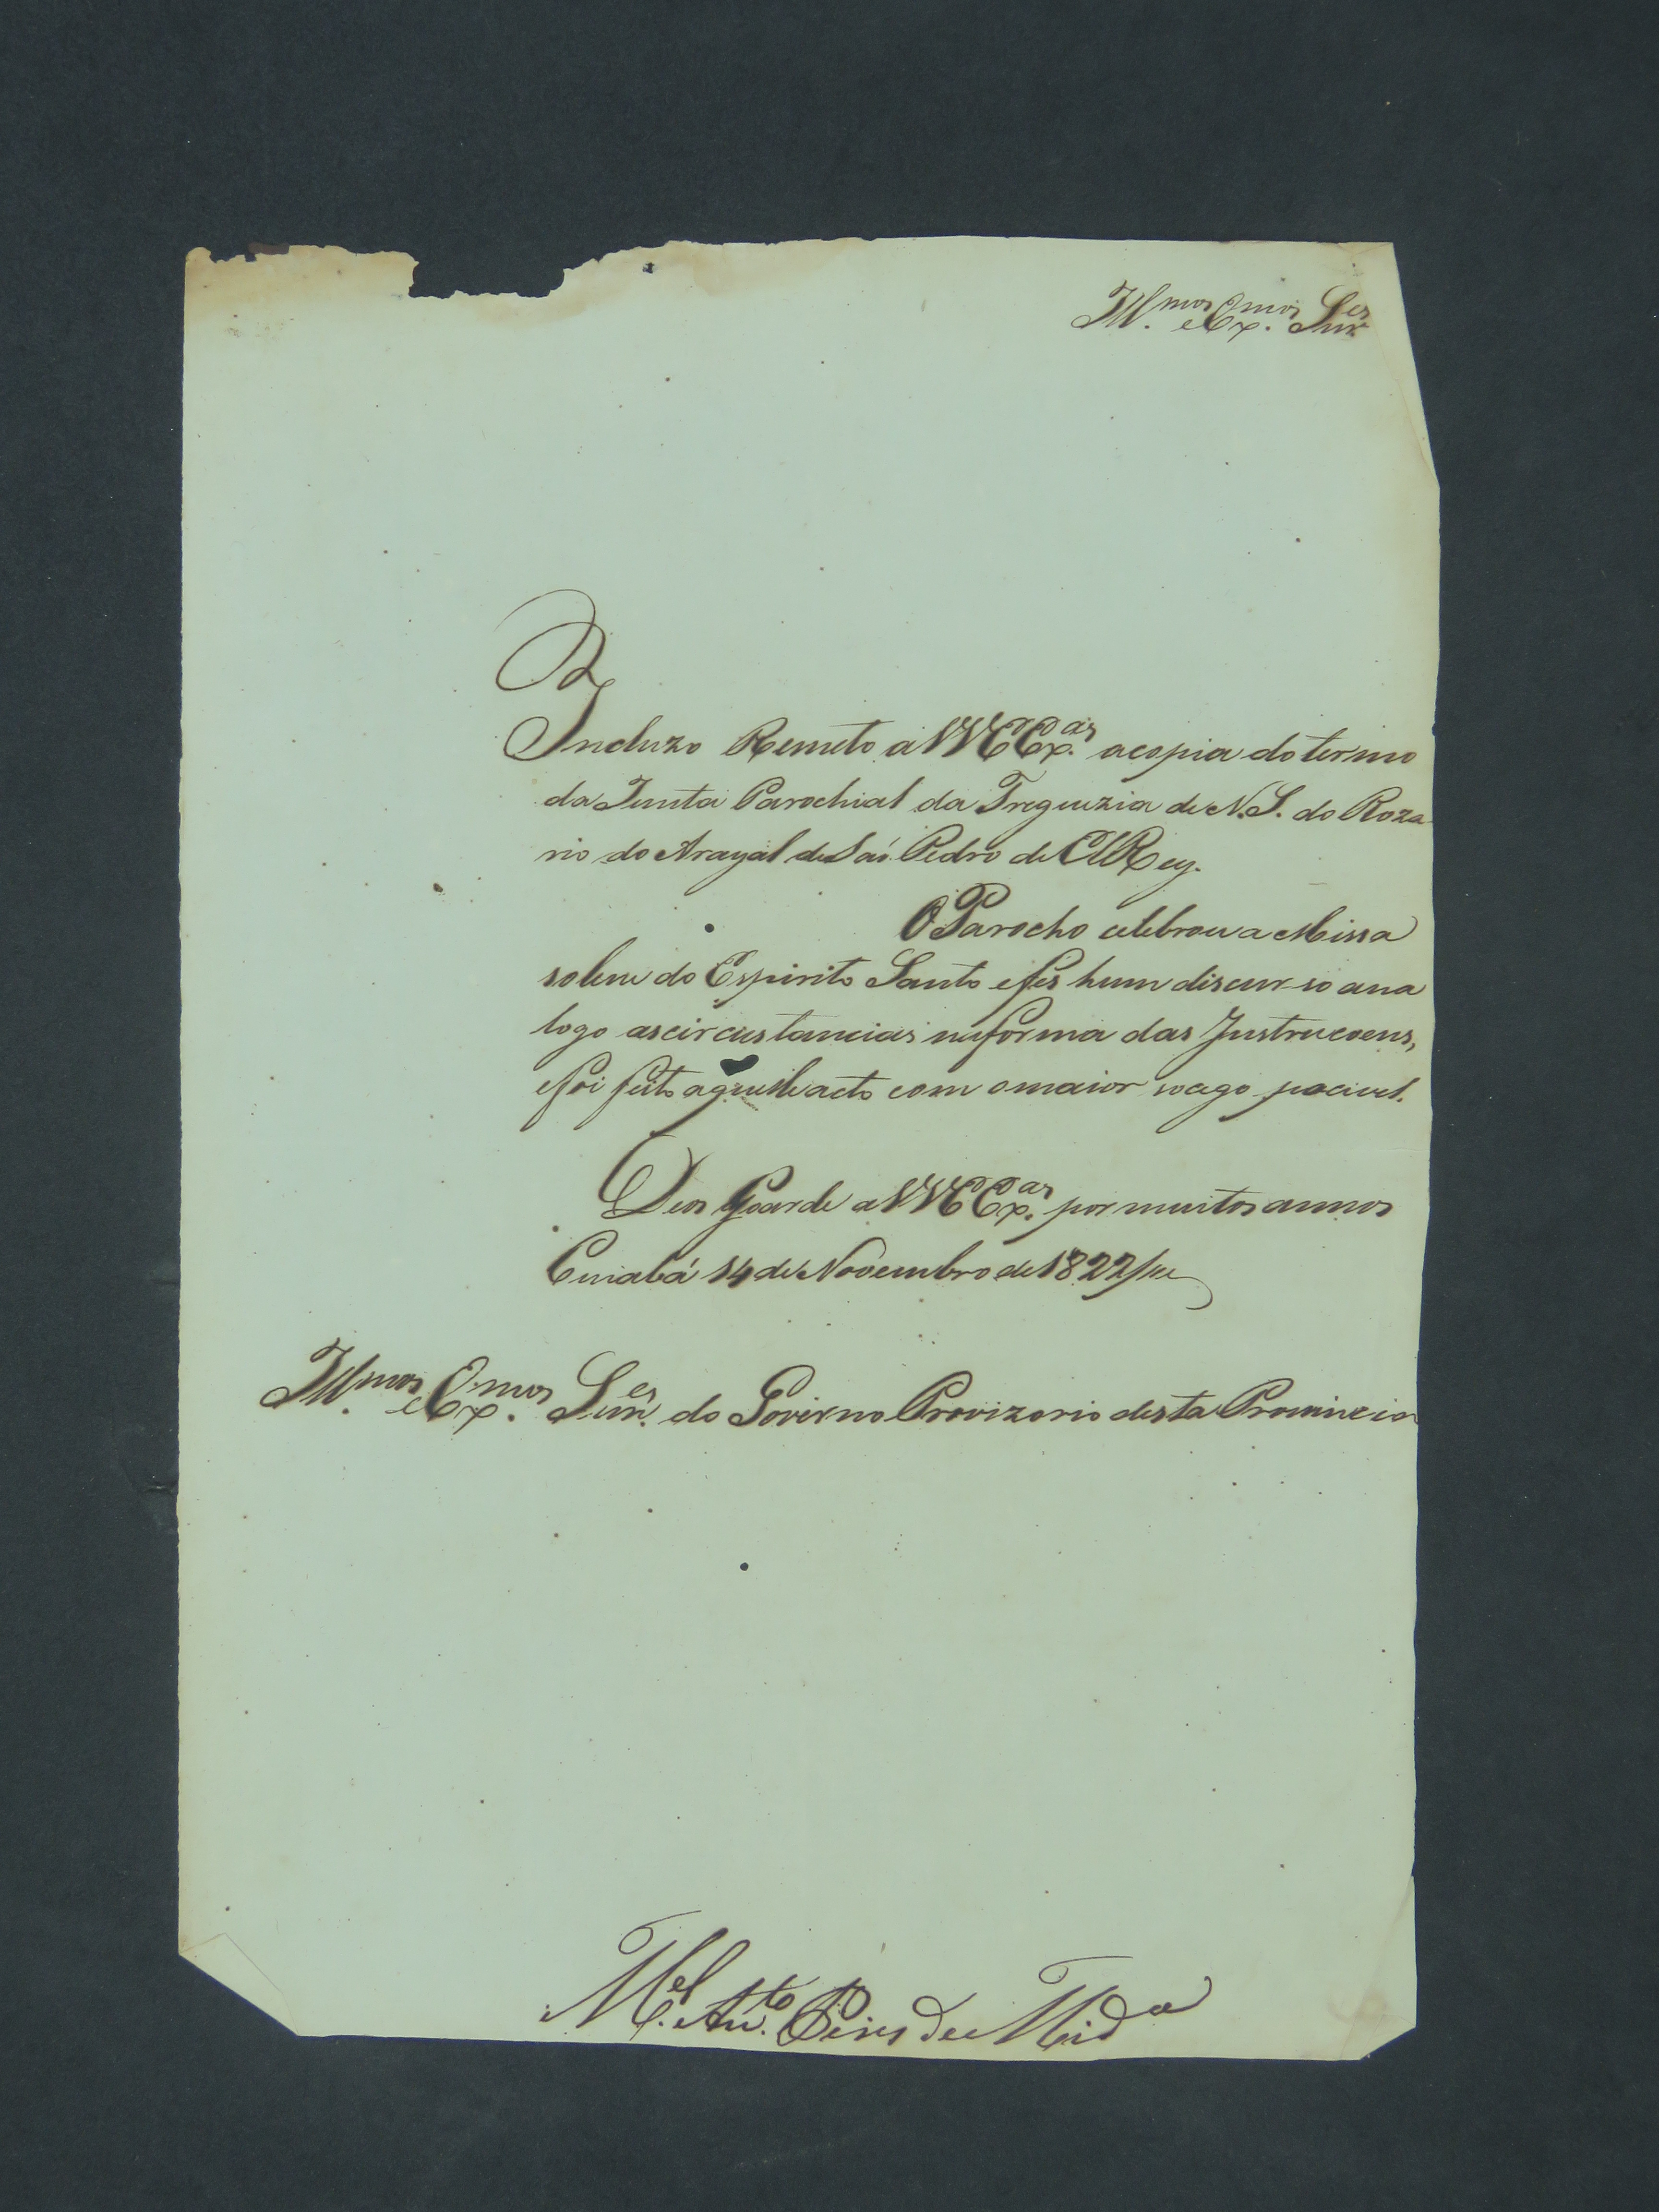 Ill.mos e Ex.mos Snr.es
Incluzo Remeto a VVEEx.as a copia do termo
da Junta Parochial da Freguezia de N. S. do Roza
rio do Arayal de Saõ Pedro de ElRey.
O Parocho celebrou a Missa
solene do Espirito Santo e fes hum discurso ana
logo as circustancias na forma das Instrucoens,
e foi feito aquelle acto com o maior socego pocivel.
Deos Goarde a VVEEx.as por muitos annos
Cuiabá 14 de Novembro de 1822
Ill.mos e Ex.mos Snr.es do Governo Provizorio desta Provincia
M.el Ant.o Pires de Mird.a